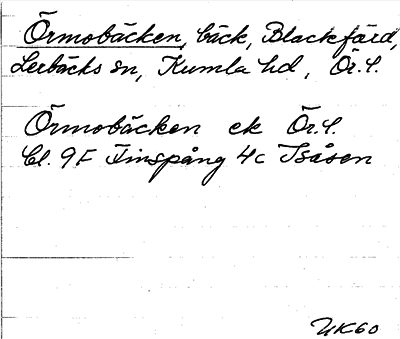 Örmobäcken, bäck, Blackfärd,
Lerbäcks sn, Kumla hd, Ör. l.
Örmobäcken ek Ör. l.
bl. 9F Finspång 4c Tsåsen
UK60